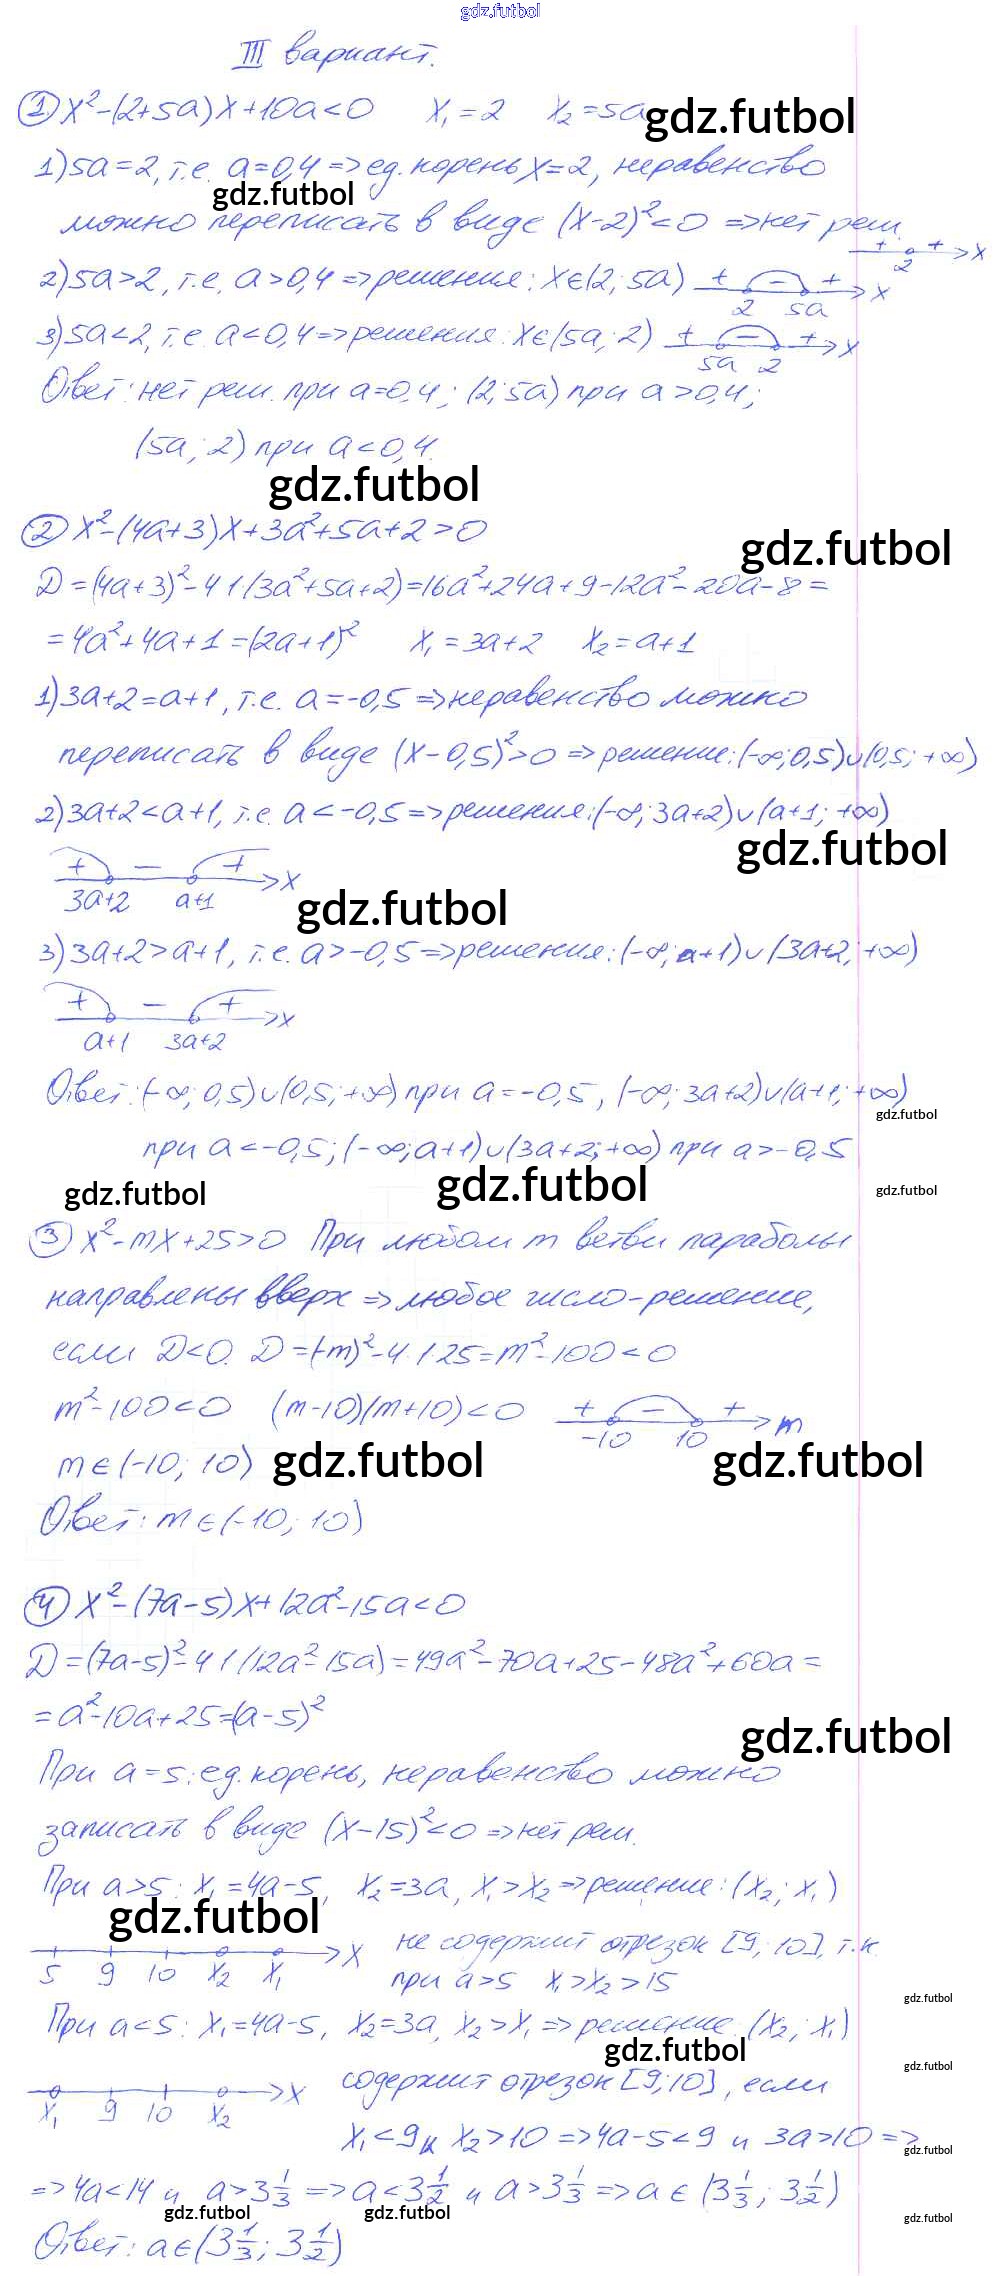 gdz.futbol
III вариант.
① x²-(2+5a)x+10a<0 x₁=2 x₂=5a gdz.futbol
1) 5a=2, т.е. a=0,4 => ед. корень x=2, неравенство
gdz.futbol
можно переписать в виде (x-2)²<0 => нет реш.
+ + x
2
2) 5a>2, т.е. a>0,4 => решения: x∈(2; 5a) + - + x
2 5a
3) 5a<2, т.е. a<0,4 => решения: x∈(5a; 2) + - + x
5a 2
Ответ: нет реш. при a=0,4; (2; 5a) при a>0,4;
(5a; 2) при a<0,4.
gdz.futbol
② x²-(4a+3)x+3a²+5a+2>0
gdz.futbol
D=(4a+3)²-4·1·(3a²+5a+2)=16a²+24a+9-12a²-20a-8=
=4a²+4a+1=(2a+1)² x₁=3a+2 x₂=a+1
1) 3a+2=a+1, т.е. a=-0,5 => неравенство можно
переписать в виде (x-0,5)²>0 => решение: (-∞; 0,5)∪(0,5; +∞)
2) 3a+2<a+1, т.е. a<-0,5 => решения: (-∞; 3a+2)∪(a+1; +∞)
gdz.futbol
+ - + x
3a+2 a+1
gdz.futbol
3) 3a+2>a+1, т.е. a>-0,5 => решения: (-∞; a+1)∪(3a+2; +∞)
+ - + x
a+1 3a+2
Ответ: (-∞; 0,5)∪(0,5; +∞) при a=-0,5, (-∞; 3a+2)∪(a+1; +∞)
gdz.futbol
при a<-0,5; (-∞; a+1)∪(3a+2; +∞) при a>-0,5
gdz.futbol gdz.futbol gdz.futbol
③ x²-mx+25>0 При любом m ветви параболы
направлены вверх => любое число-решение,
если D<0. D=(-m)²-4·1·25=m²-100<0
m²-100<0 (m-10)(m+10)<0 + - + m
-10 10
m∈(-10; 10) gdz.futbol gdz.futbol
Ответ: m∈(-10; 10)
④ x²-(7a-5)x+12a²-15a<0
D=(7a-5)²-4·1·(12a²-15a)=49a²-70a+25-48a²+60a=
=a²-10a+25=(a-5)²
gdz.futbol
При a=5: ед. корень, неравенство можно
записать в виде (x-15)²<0 => нет реш.
При a>5: x₁=4a-5, x₂=3a, x₁>x₂ => решение: (x₂; x₁)
gdz.futbol
не содержит отрезок [9; 10], т.к.
x
5 9 10 x₂ x₁
при a>5 x₁>x₂>15
gdz.futbol
При a<5: x₁=4a-5, x₂=3a, x₂>x₁ => решение: (x₂; x₁)
gdz.futbol
gdz.futbol
содержит отрезок [9; 10], если
x
x₁ 9 10 x₂
x₁<9 и x₂>10 => 4a-5<9 и 3a>10 =>
gdz.futbol
=> 4a<14 и a>3 1/3 => a<3 1/2 и a>3 1/3 => a∈(3 1/3; 3 1/2)
gdz.futbol gdz.futbol gdz.futbol
Ответ: a∈(3 1/3; 3 1/2)